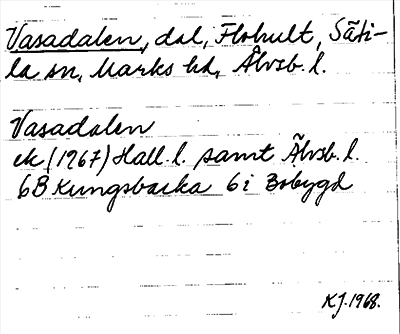 Vasadalen, dal, Flohult, Säti-
la sn, Marks hd, Älvsb. l.
Vasadalen
ek (1967) Hall. l. samt Älvsb. l.
6B Kungsbacka 6i Bobygd
KJ. 1968.